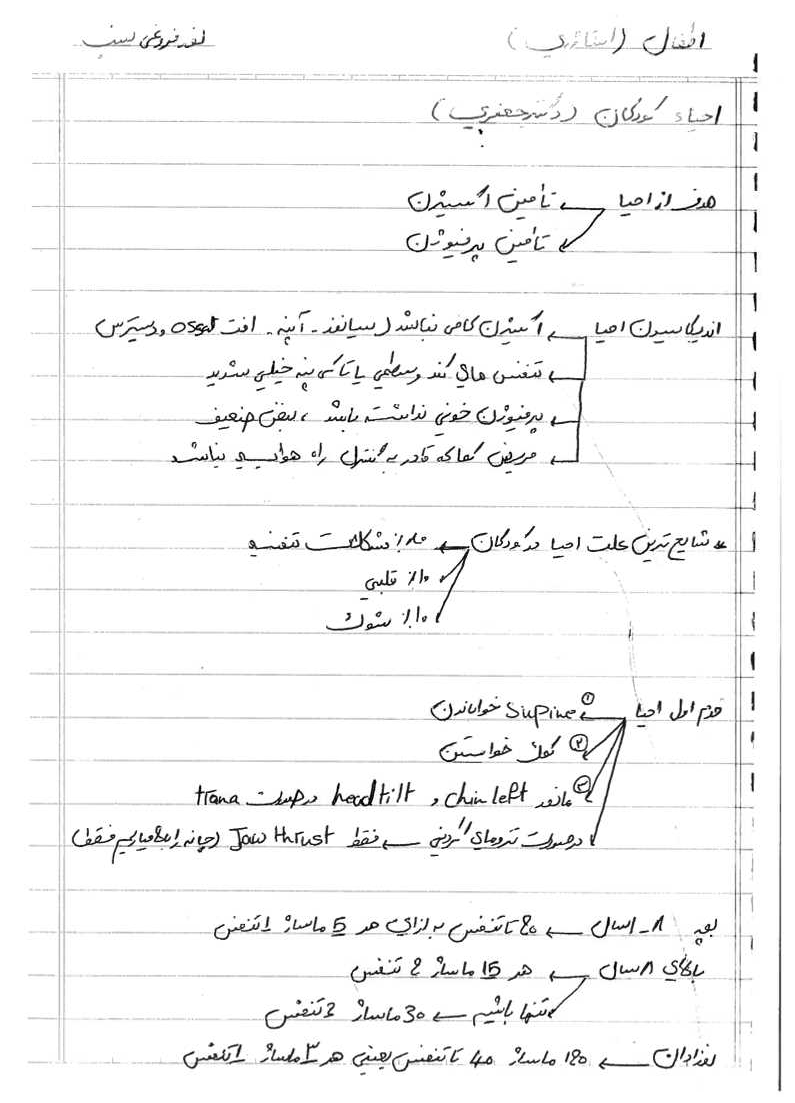 اطفال (استاژری) نغمه فروغی نسب
احیاء کودکان (دکتر جعفری)
هدف از احیا ← تأمین اکسیژن
← تأمین پرفیوژن
اندیکاسیون احیا ← اکسیژن کافی نباشد (سیانوز - آپنه - افت O2sat و دیسترس
← تنفس های کند و سطحی یا تاکی پنه خیلی شدید
← پرفیوژن خوبی نداشته باشد ، نبض ضعیف
← مریض کماکه قادر به کنترل راه هوایی نباشد
* شایع ترین علت احیا در کودکان ← ۸۰٪ مشکلات تنفسی
۱۰٪ قلبی
۱۰٪ شوک
قدم اول احیا ← ① Supine خواباندن
② کمک خواستن
③ مانور chin left و head tilt در صورت trana
در صورت ترومای گردنی ← فقط Jaw thrust (چانه را بالا میاریم فقط)
بچه ۸-۱ سال ← 20 تا تنفس به ازای هر 5 ماساژ 1 تنفس
بالای ۸ سال ← هر 15 ماساژ 2 تنفس
تنها باشیم ← 30 ماساژ 2 تنفس
نوزادان ← 120 ماساژ 40 تا تنفس یعنی هر ۳ ماساژ 1 تنفس